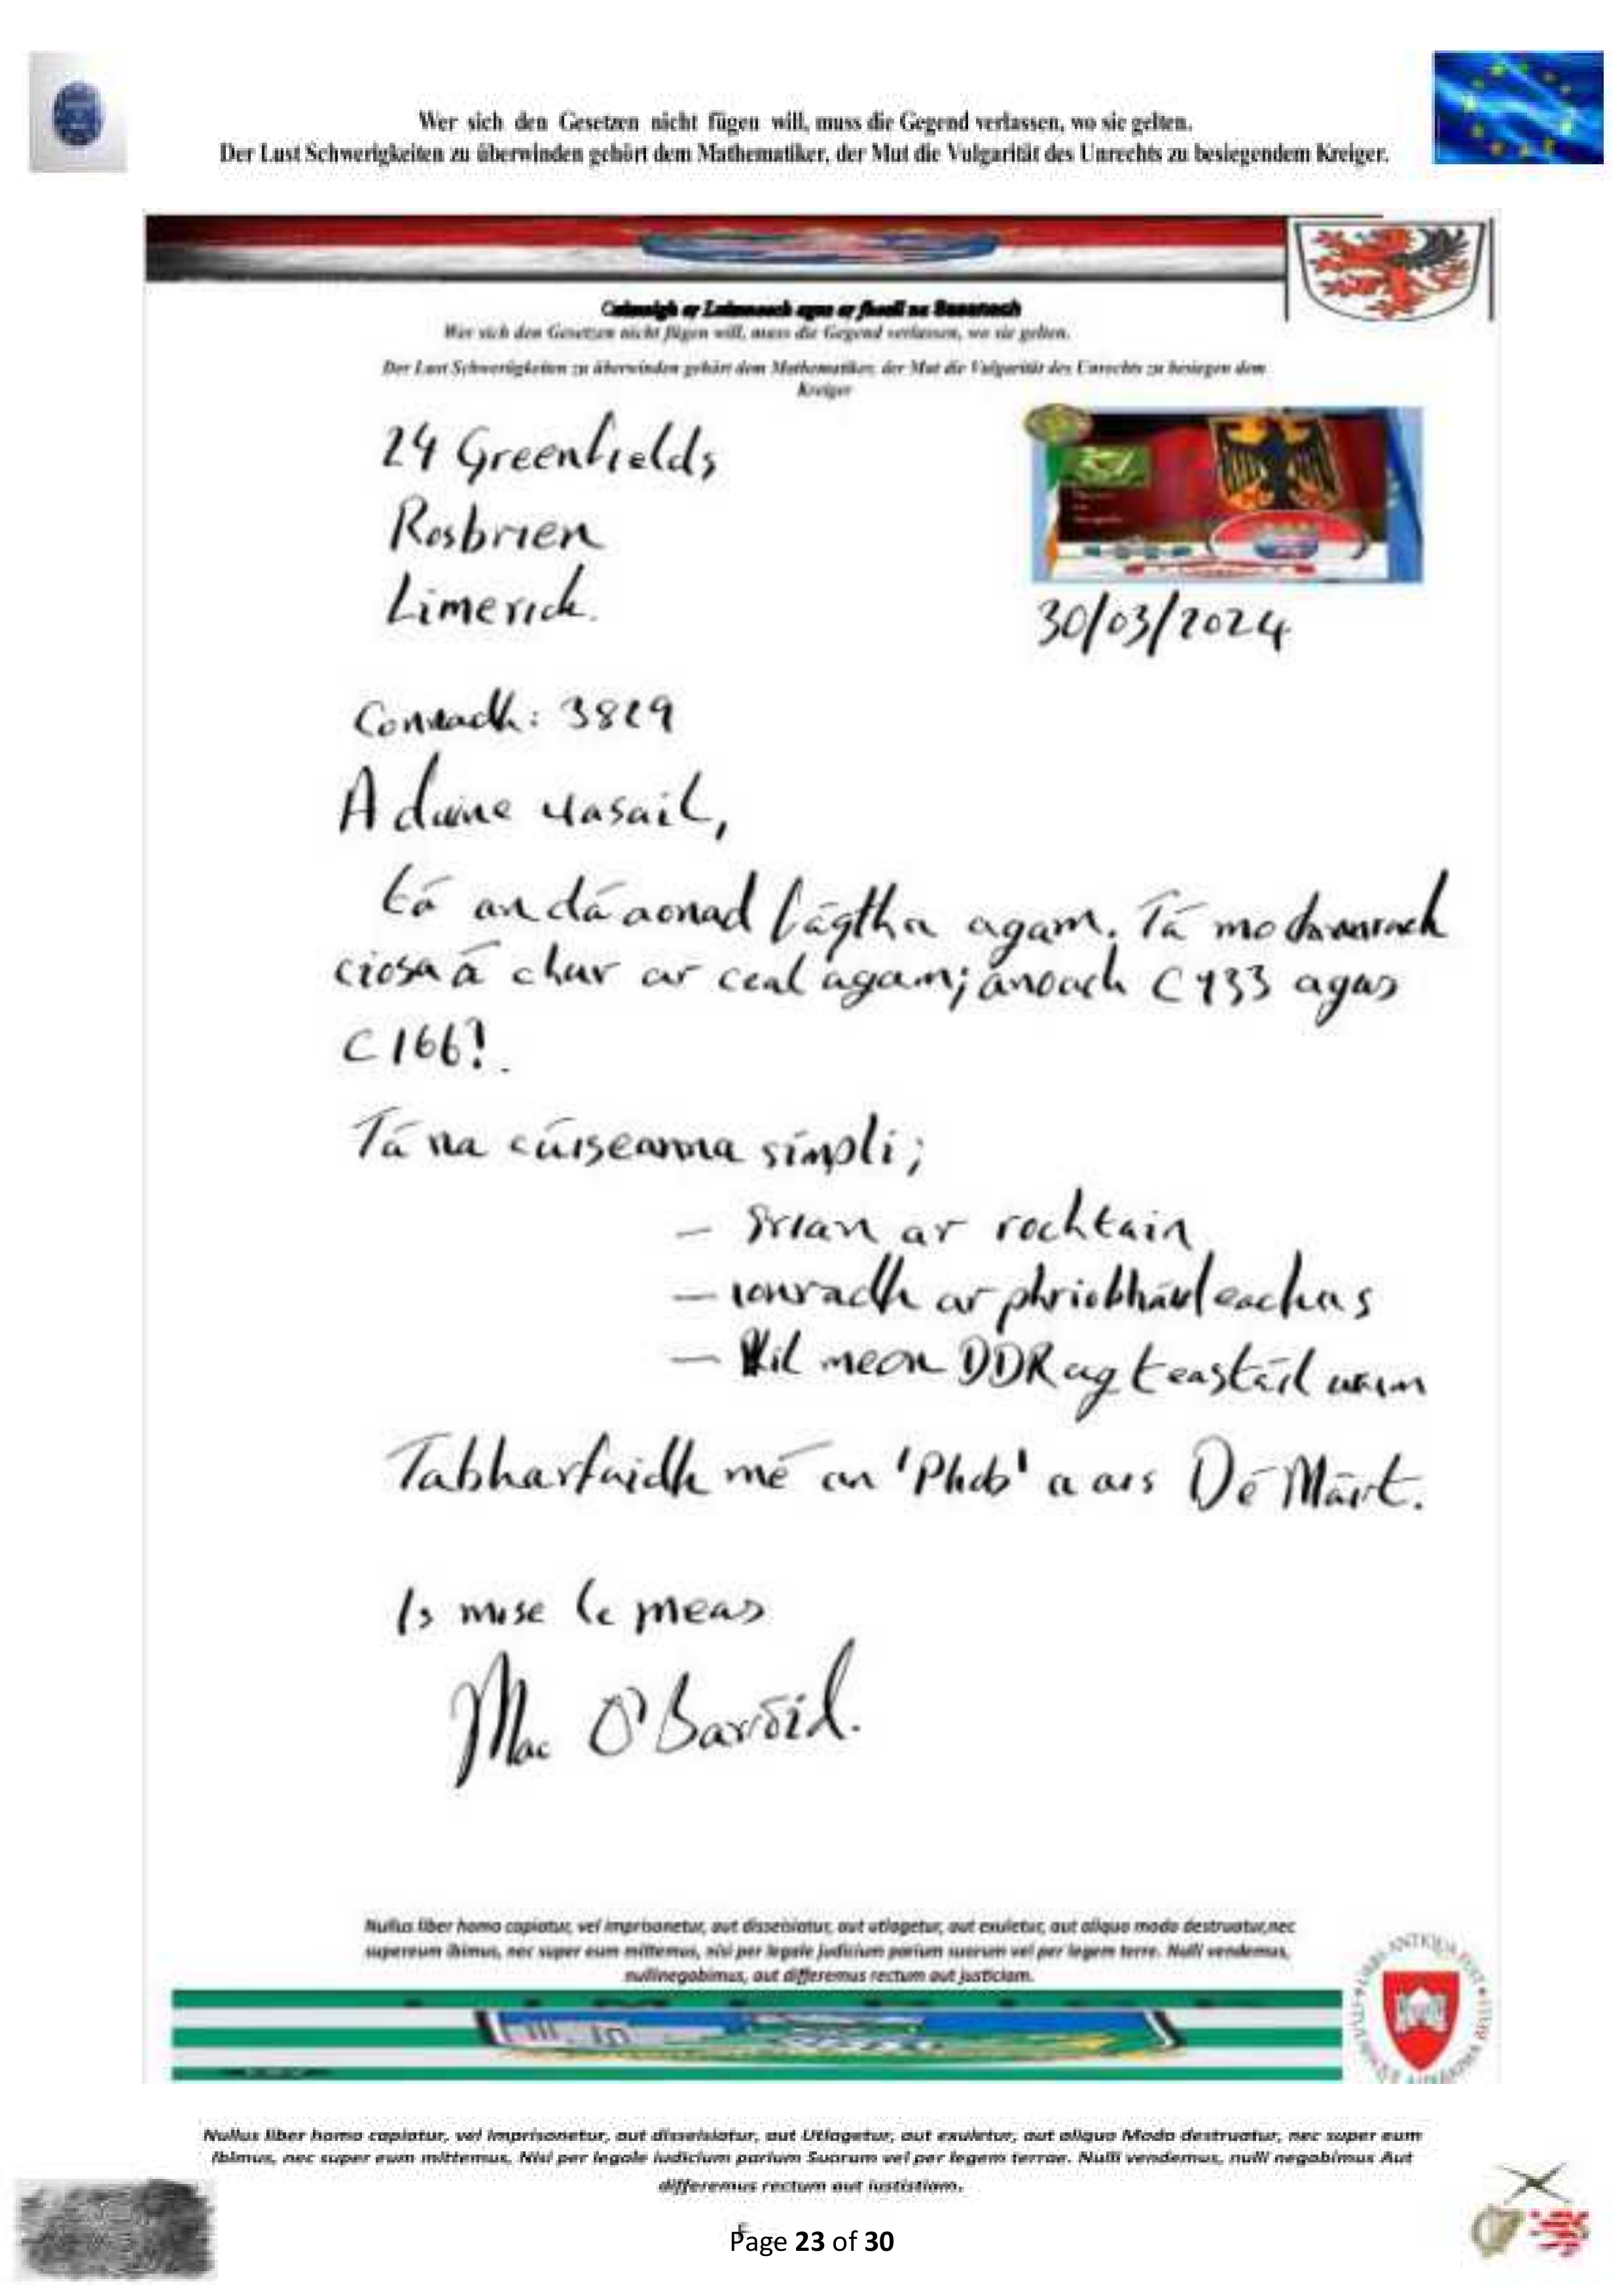 Wer sich den Gesetzen nicht fügen will, muss die Gegend verlassen, wo sie gelten.
Der Lust Schwerigkeiten zu überwinden gehört dem Mathematiker, der Mut die Vulgarität des Unrechts zu besiegendem Kreiger.
ar Luimneach agus ar fheall na Sasanach
Wer sich den Gesetzen nicht fügen will, muss die Gegend verlassen, wo sie gelten.
Der Lust Schwerigkeiten zu überwinden gehört dem Mathematiker, der Mut die Vulgarität des Unrechts zu besiegen dem
Kreiger
24 Greenfields
Rosbrien
Limerick.
30/03/2024
Conradh: 3829
A duine uasail,
tá an dá aonad fágtha agam. Tá mo
ciosa á chur ar ceal agam; anoach C433 agus
C166!.
Tá na cúiseanna simpli;
– Srian ar rochtain
– ionradh ar phriobháideachas
– Níl meon DDR ag teastáil uaim
Tabharfaidh mé an 'Phob' a ais Dé Máirt.
Is mise le meas
Mac O'Baróid.
Nullus liber homo capiatur, vel imprisonetur, aut disseisiatur, aut utlagetur, aut exuletur, aut aliquo modo destruatur,nec
supereum ibimus, nec super eum mittemus, nisi per legale judicium parium suorum vel per legem terre. Nulli vendemus,
nullinegabimus, aut differemus rectum aut justiciam.
Nullus liber homo capiatur, vel imprisonetur, aut disseisiatur, aut Utlagetur, aut exuletur, aut aliquo Modo destruatur, nec super eum
ibimus, nec super eum mittemus, Nisi per legale iudicium parium Suorum vel per legem terrae. Nulli vendemus, nulli negabimus Aut
differemus rectum aut iustistiam.
Page 23 of 30